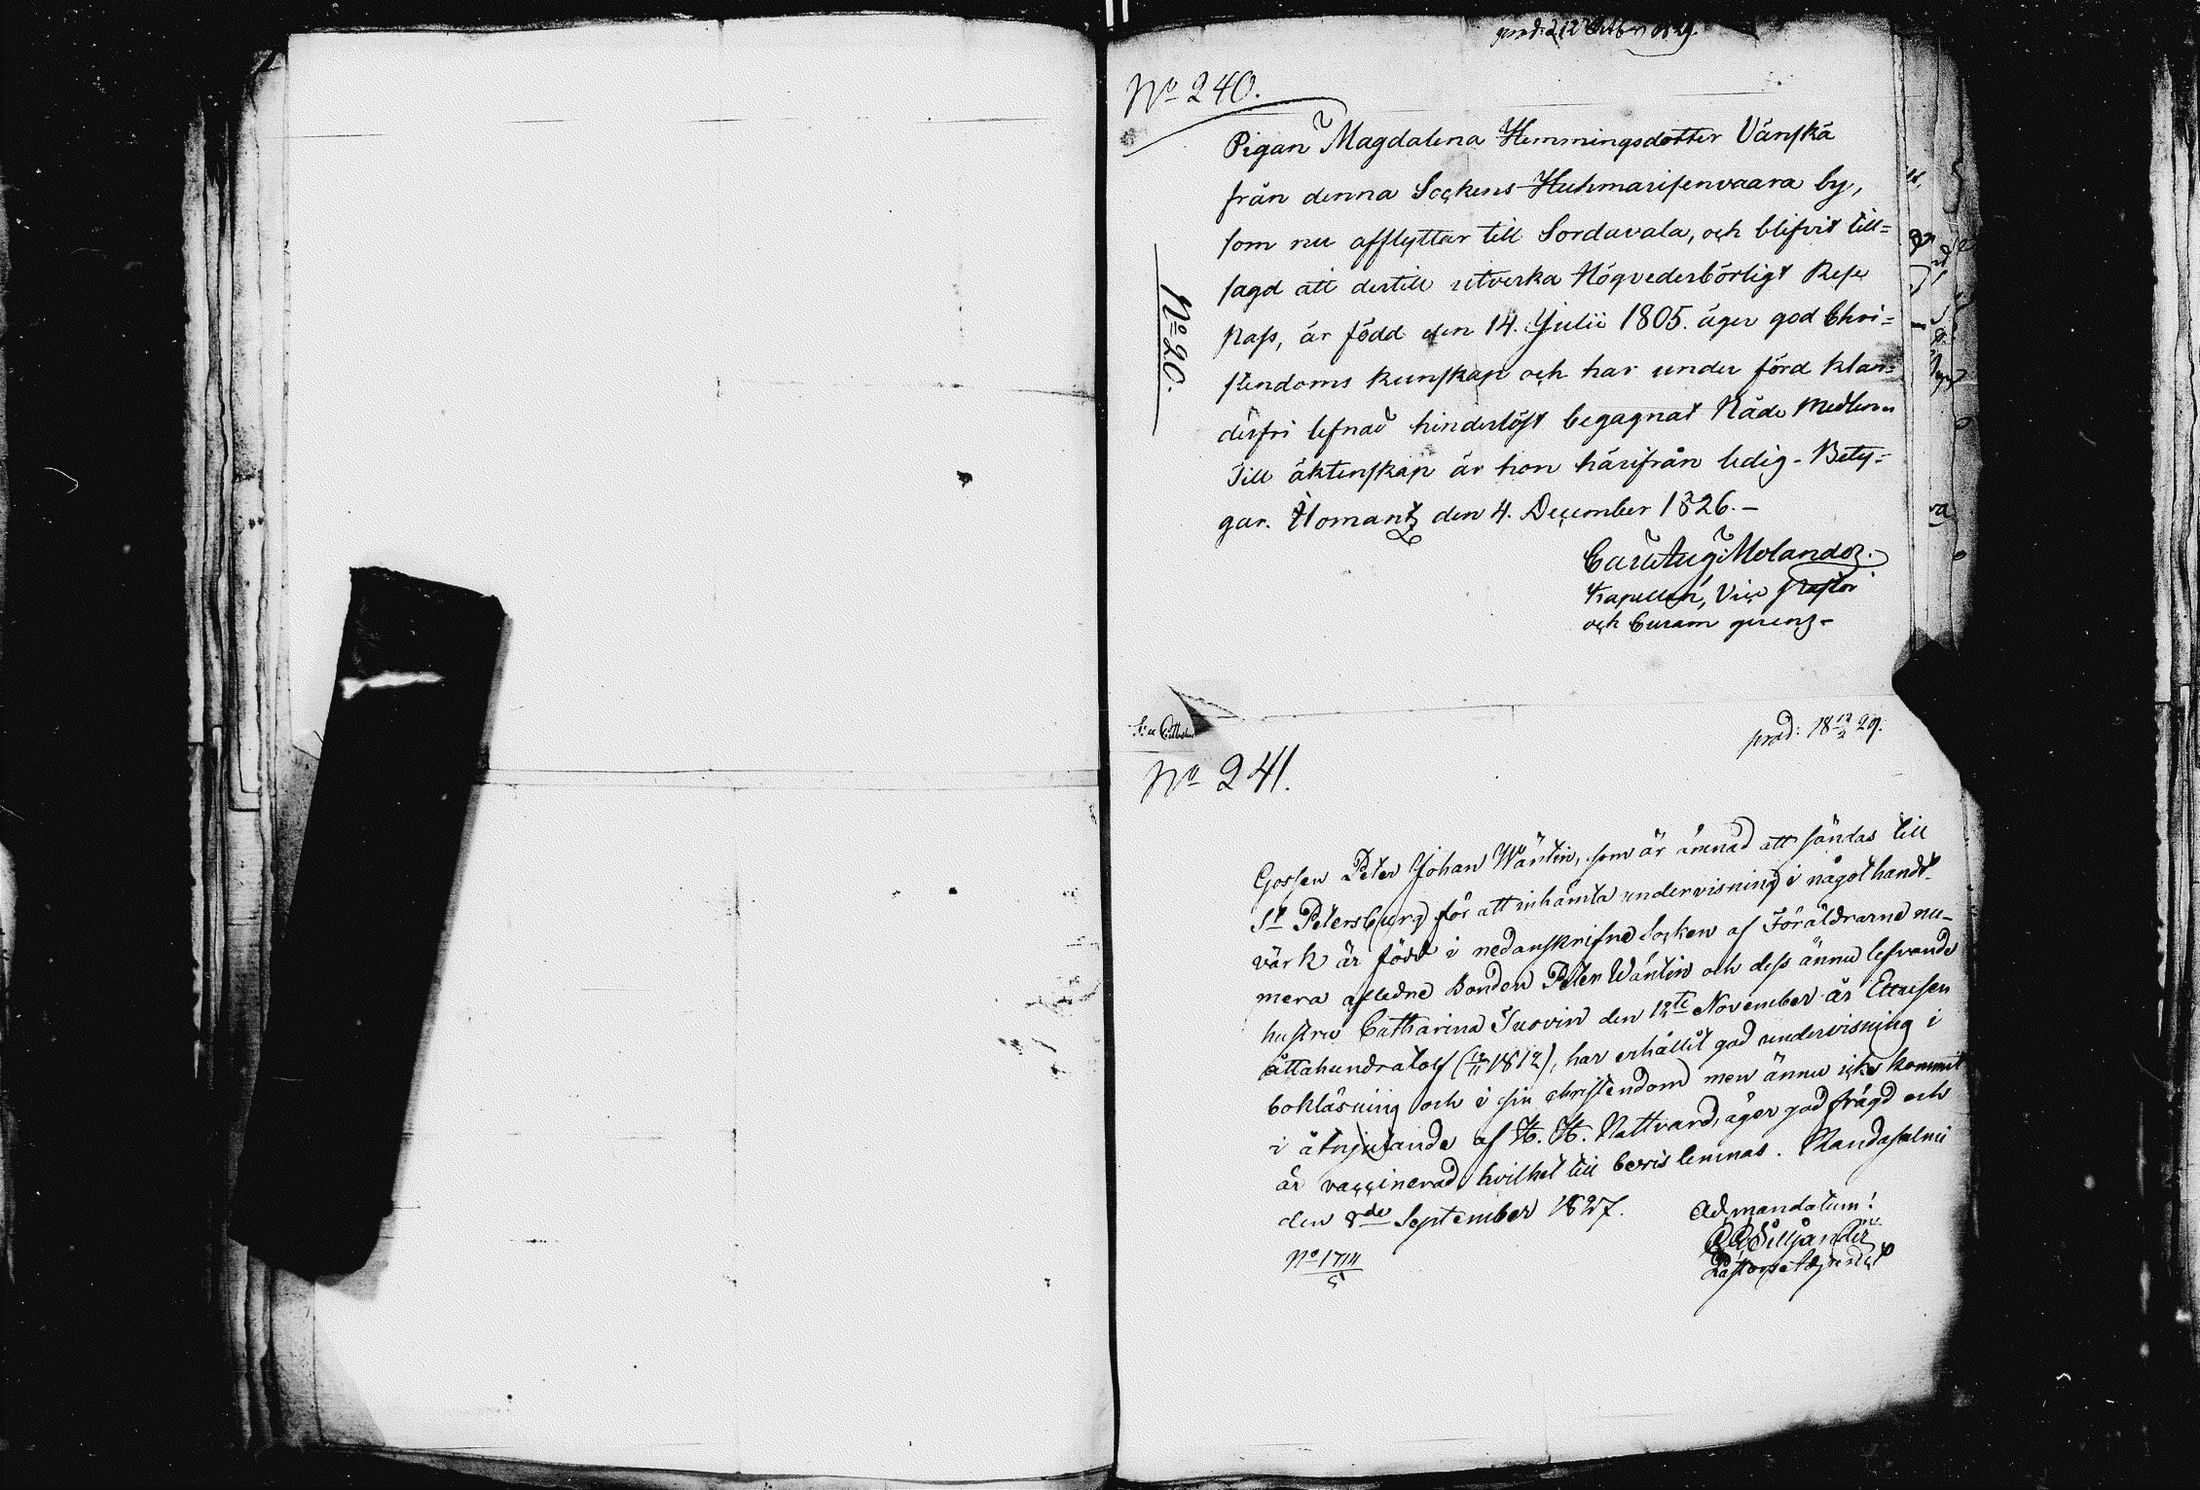 No 240.
Pigan Magdalena Hemmingsdotter Vänskä
från denna Sockens Huhmarisenvaara by,
som nu afflyttar till Sordavala, och blifvit till=
sagd att dertill utverka Högvederbörligt Rese
Pass, är född den 14. Julii 1805. äger god Chri=
stendoms kunskap och har under förd klan=
derfri lefnad hinderlöst begagnat Nåde Medlen
Till äktenskap är hon härifrån ledig - Bety=
gar. Ilomantz den 4. December 1826. -
Carl Aug: Molander.
Kapellan, Vice Pastor
och Curam gerens -
No 20.
prod: 18 12/2 29.
No 241.
Gossen Peter Johan Wäntin, som är ämnad att sändas till
St Petersburg för att inhämta undervisning i något handt-
värk är född i nedanskrifne Socken af Föräldrarne nu-
mera aflidne Bonden Peter Wäntin och dess ännu lefvande
hustru Catharina Tuovin den 12te November år Ettusen
åttahundratolf (12/11 1812), har erhållit god undervisning i
bokläsning och i sin christendom men ännu icke kommit
i åtnjutande af H. H. Nattvard, äger god frägd och
är vaccinerad, hvilket till bevis lemnas. Idensalmi
den 8de September 1827.
Ad mandatum:
No 1714